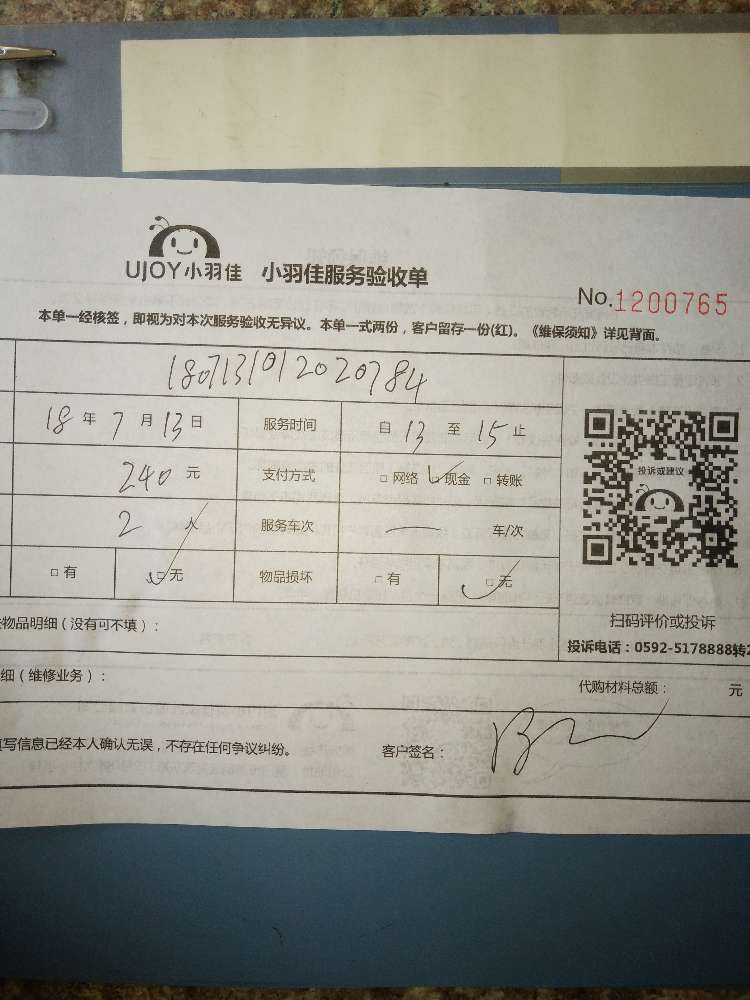 UJOY小羽佳 小羽佳服务验收单
No.1200765
本单一经核签，即视为对本次服务验收无异议。本单一式两份，客户留存一份(红)。《维保须知》详见背面。
1807131012020784
18年7月13日 服务时间 自13至15止
240元 支付方式 □网络 □现金 □转账
投诉或建议
2人 服务车次 — 车/次
□有 □无 物品损坏 □有 □无
物品明细（没有可不填）：
扫码评价或投诉
投诉电话：0592-5178888转2
细（维修业务）： 代购材料总额： 元
写信息已经本人确认无误，不存在任何争议纠纷。 客户签名：